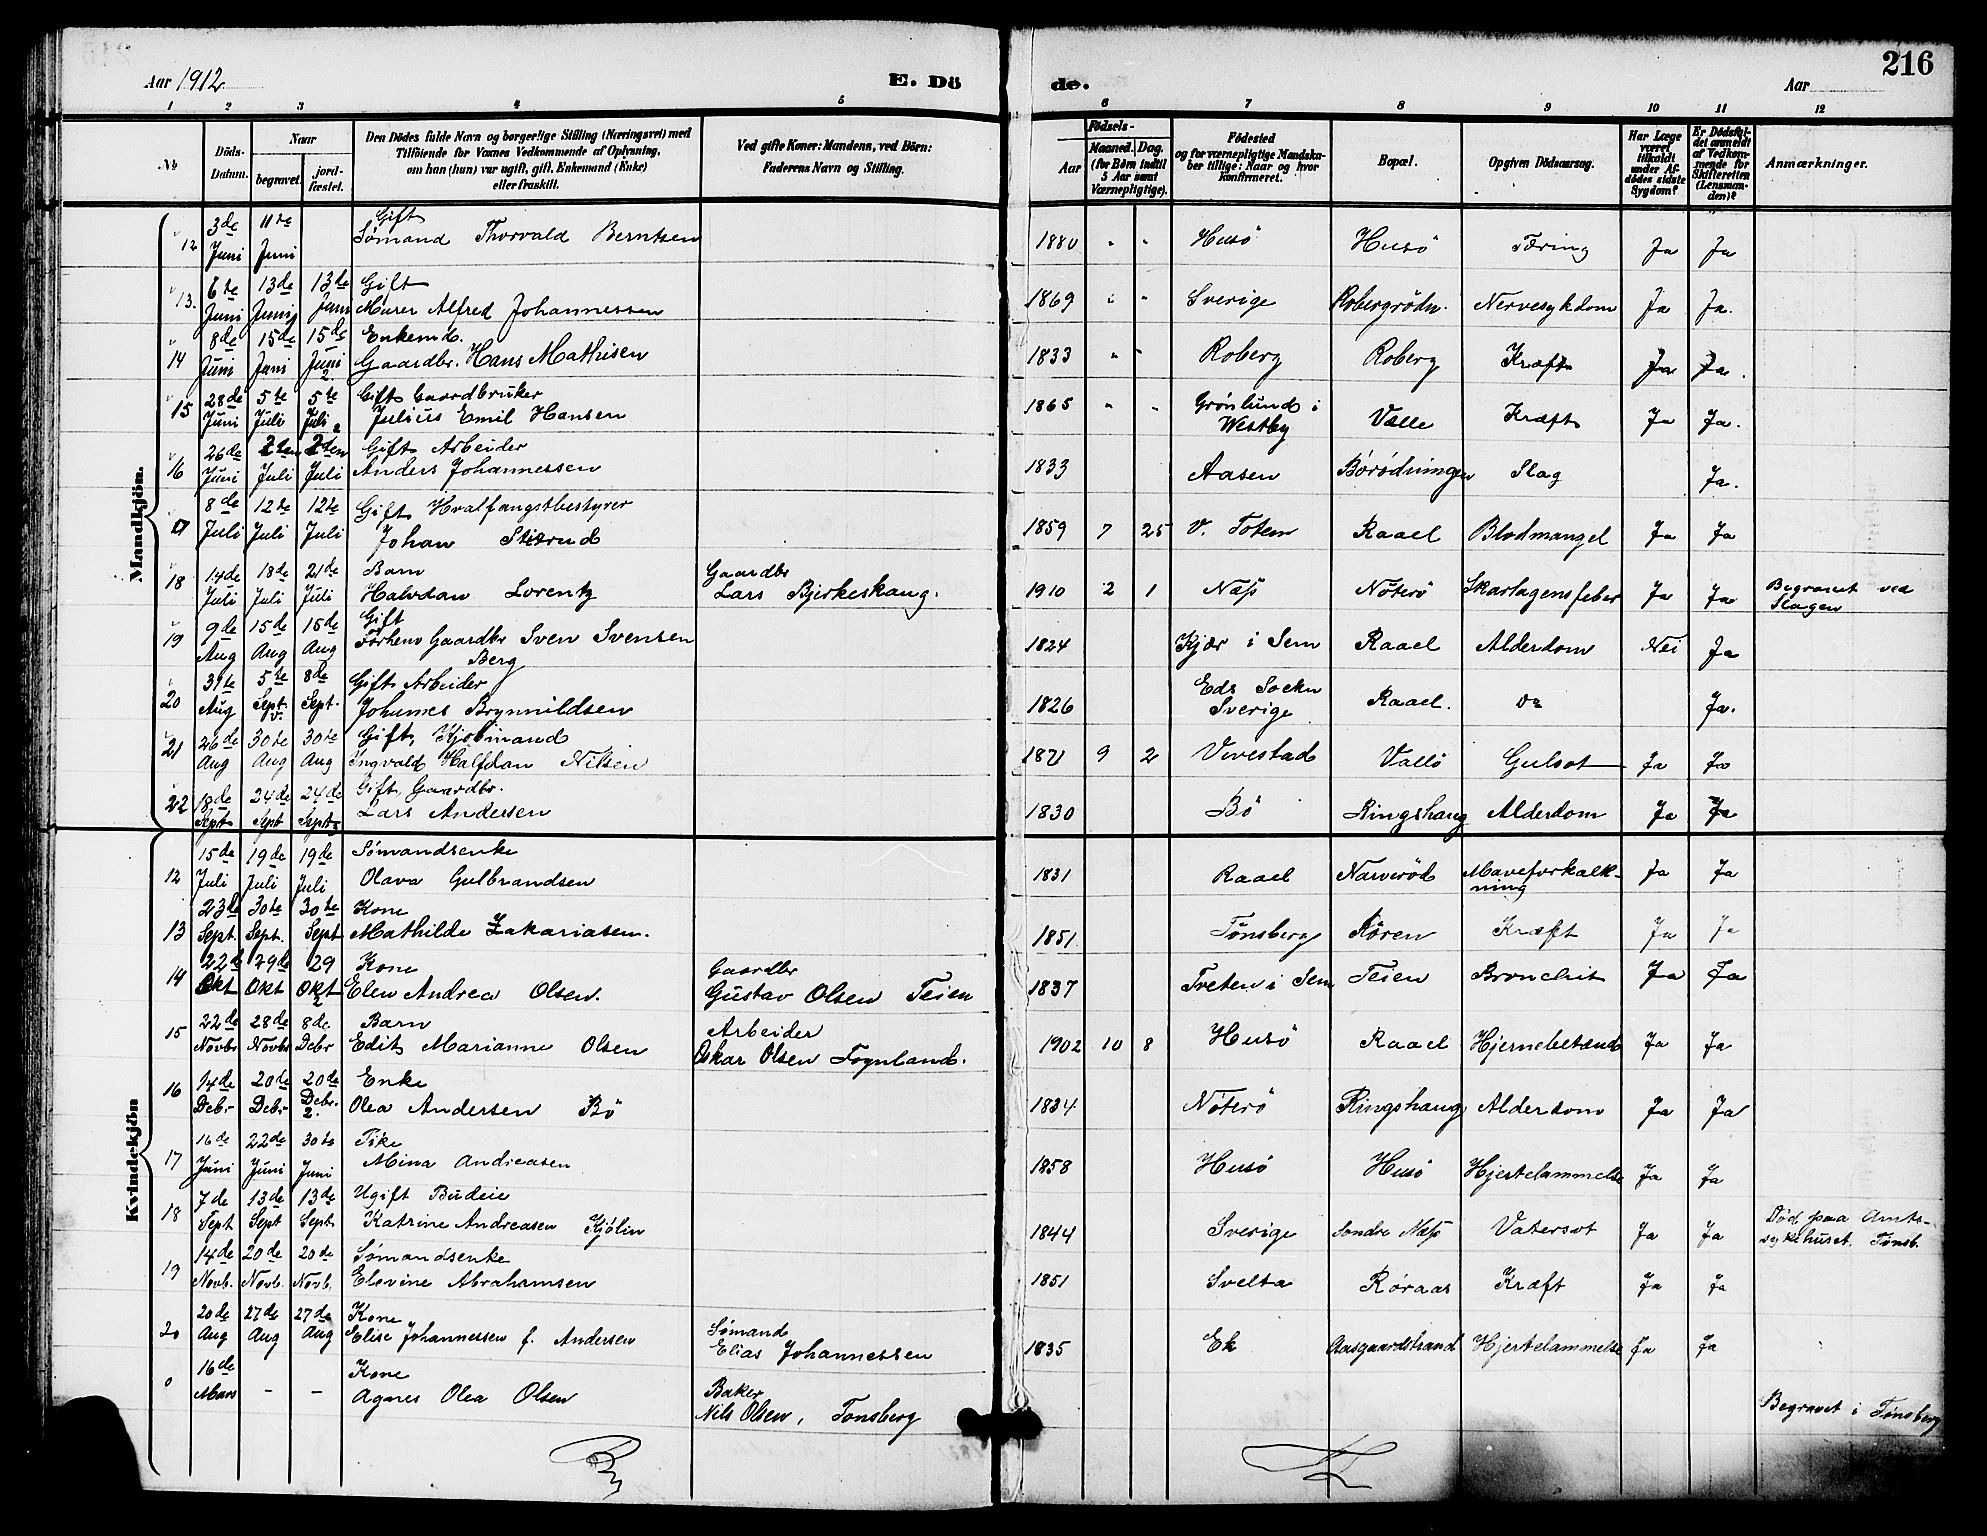 Aar 1912
E. Dö
de.
Aar
216
1 2 3 4 5 6 7 8 9 10 11 12
No
Döds-Datum.
Naar
begravet.
jord-fæstet.
Den Dödes fulde Navn og borgerlige Stilling (Næringsvei) med
Tilföiende for Voxnes Vedkommende af Oplysning,
om han (hun) var ugift, gift, Enkemand (Enke)
eller fraskilt.
Ved gifte Koner: Mandens, ved Börn:
Faderens Navn og Stilling.
Födsels-
Aar
Maaned. Dag.
(for Börn indtil
5 Aar samt
Værnepligtige).
Födested
og for værnepligtige Mandska-
ber tillige: Naar og hvor
konfirmeret.
Bopæl.
Opgiven Dödsaarsag.
Har Læge
været
tilkaldt
under Af-
dödes sidste
Sygdom?
Er Dödsfal-
det anmeldt
af Vedkom-
mende for
Skifteretten
(Lensman-
den)?
Anmærkninger.
Mandkjön.
12 3de Juni 11te Juni Gift Sømand Thorvald Berntsen 1880 " " Husö Husö Tæring Ja Ja
13. 6te Juni 13de Juni 13de Juni Gift Murer Alfred Johannessen 1869 " " Sverige Robergrödn. Nervesykdom Ja Ja.
14 8de Juni 15de Juni 15de Juni Enkemd. Gaardbr. Hans Mathisen 1833 " " Roberg Roberg Kræft Ja Ja.
15 28de Juni 5te Juli 5te Juli Gift Gaardbruker Julius Emil Hansen 1865 " " Grönlund i Westby Valle Kræft Ja Ja.
16 26de Juni 2den Juli 2den Juli Gift Arbeider Anders Johannessen 1833 Aasen Börödningen Slag Ja.
17 8de Juli 12te Juli 12te Juli Gift Hvalfangstbestyrer Johan Stixrud 1859 7 25 V. Toten Raael Blodmangel Ja Ja
18 14de Juli 18de Juli 21de Juli Barn Halvdan Lorentz Gaardbr Lars Bjerkeskaug. 1910 2 1 Næss Nöterö Skarlagensfeber Ja Ja Begravet ved Slagen
19 9de Aug 15de Aug 15de Aug Gift Forhenv Gaardbr Sven Svensen Berg 1824 Kjær i Sem Raael Alderdom Nei Ja
20 31te Aug 5te Sept. 8de Sept. Gift Arbeider Johannes Brynnildsen 1826 Eds Socken Sverige Raael. do Ja.
21 26de Aug 30te Aug 30te Aug Gift, Kjøbmand Ingvald Halfdan Nilsen 1871 9 2 Vivestad Vallö Gulsot Ja Ja
22 18de Sept 24de Sept 24de Sept Gift Gaardbr. Lars Andersen 1830 Bö Ringshaug Alderdom Ja Ja
Kvindekjön
12 15de Juli 19de Juli 19de Juli Sømandsenke Olava Gulbrandsen 1831 Raael Narverød Maveforkalk-ning Ja Ja
13 23de Sept. 30te Sept. 30te Sept Kone Mathilde Zakariasen. 1851. Tønsberg Kören Kræft Ja Ja
14 22de Okt 29de Okt 29 Okt Kone Elen Andrea Olsen. Gaardbr Gustav Olsen Teien 1837 Tveten i Sem Teien Bronchit Ja Ja
15 22de Novbr 28de Novbr 8de Debr Barn Edith Marianne Olsen Arbeider Oskar Olsen Fognland. 1902 10 8 Husö Raael Hjernebetænd Ja Ja
16 14de Debr 20de Debr 20de Debr. Enke Olea Andersen Bö 1834. Nöterö Ringshaug Alderdom Ja Ja
17 16de Juni 22de Juni 30te Juni Pike Mina Andreasen 1858 Husö Husö Hjertelammelse Ja Ja
18 7de Sept 13de Sept 13de Sept. Ugift Budeie Katrine Andreasen Kjölin 1844 Sverige Söndre Næss Vatersot Ja Ja Död paa Amts-sykehuset. Tønsb.
19 14de Novb. 20de Novb. 20de Novb. Sømandsenke Elevine Abrahamsen 1851 Svelta Røraas Kræft Ja Ja
20 20de Aug 27de Aug 27de Aug Kone Elise Johannessen f. Andersen Sømand Elias Johannessen 1835 Ek Aasgaardstrand Hjertelammelse Ja Ja
0 16de Mars - - Kone Agnes Olea Olsen Baker Nils Olsen, Tønsberg Begravet i Tønsberg